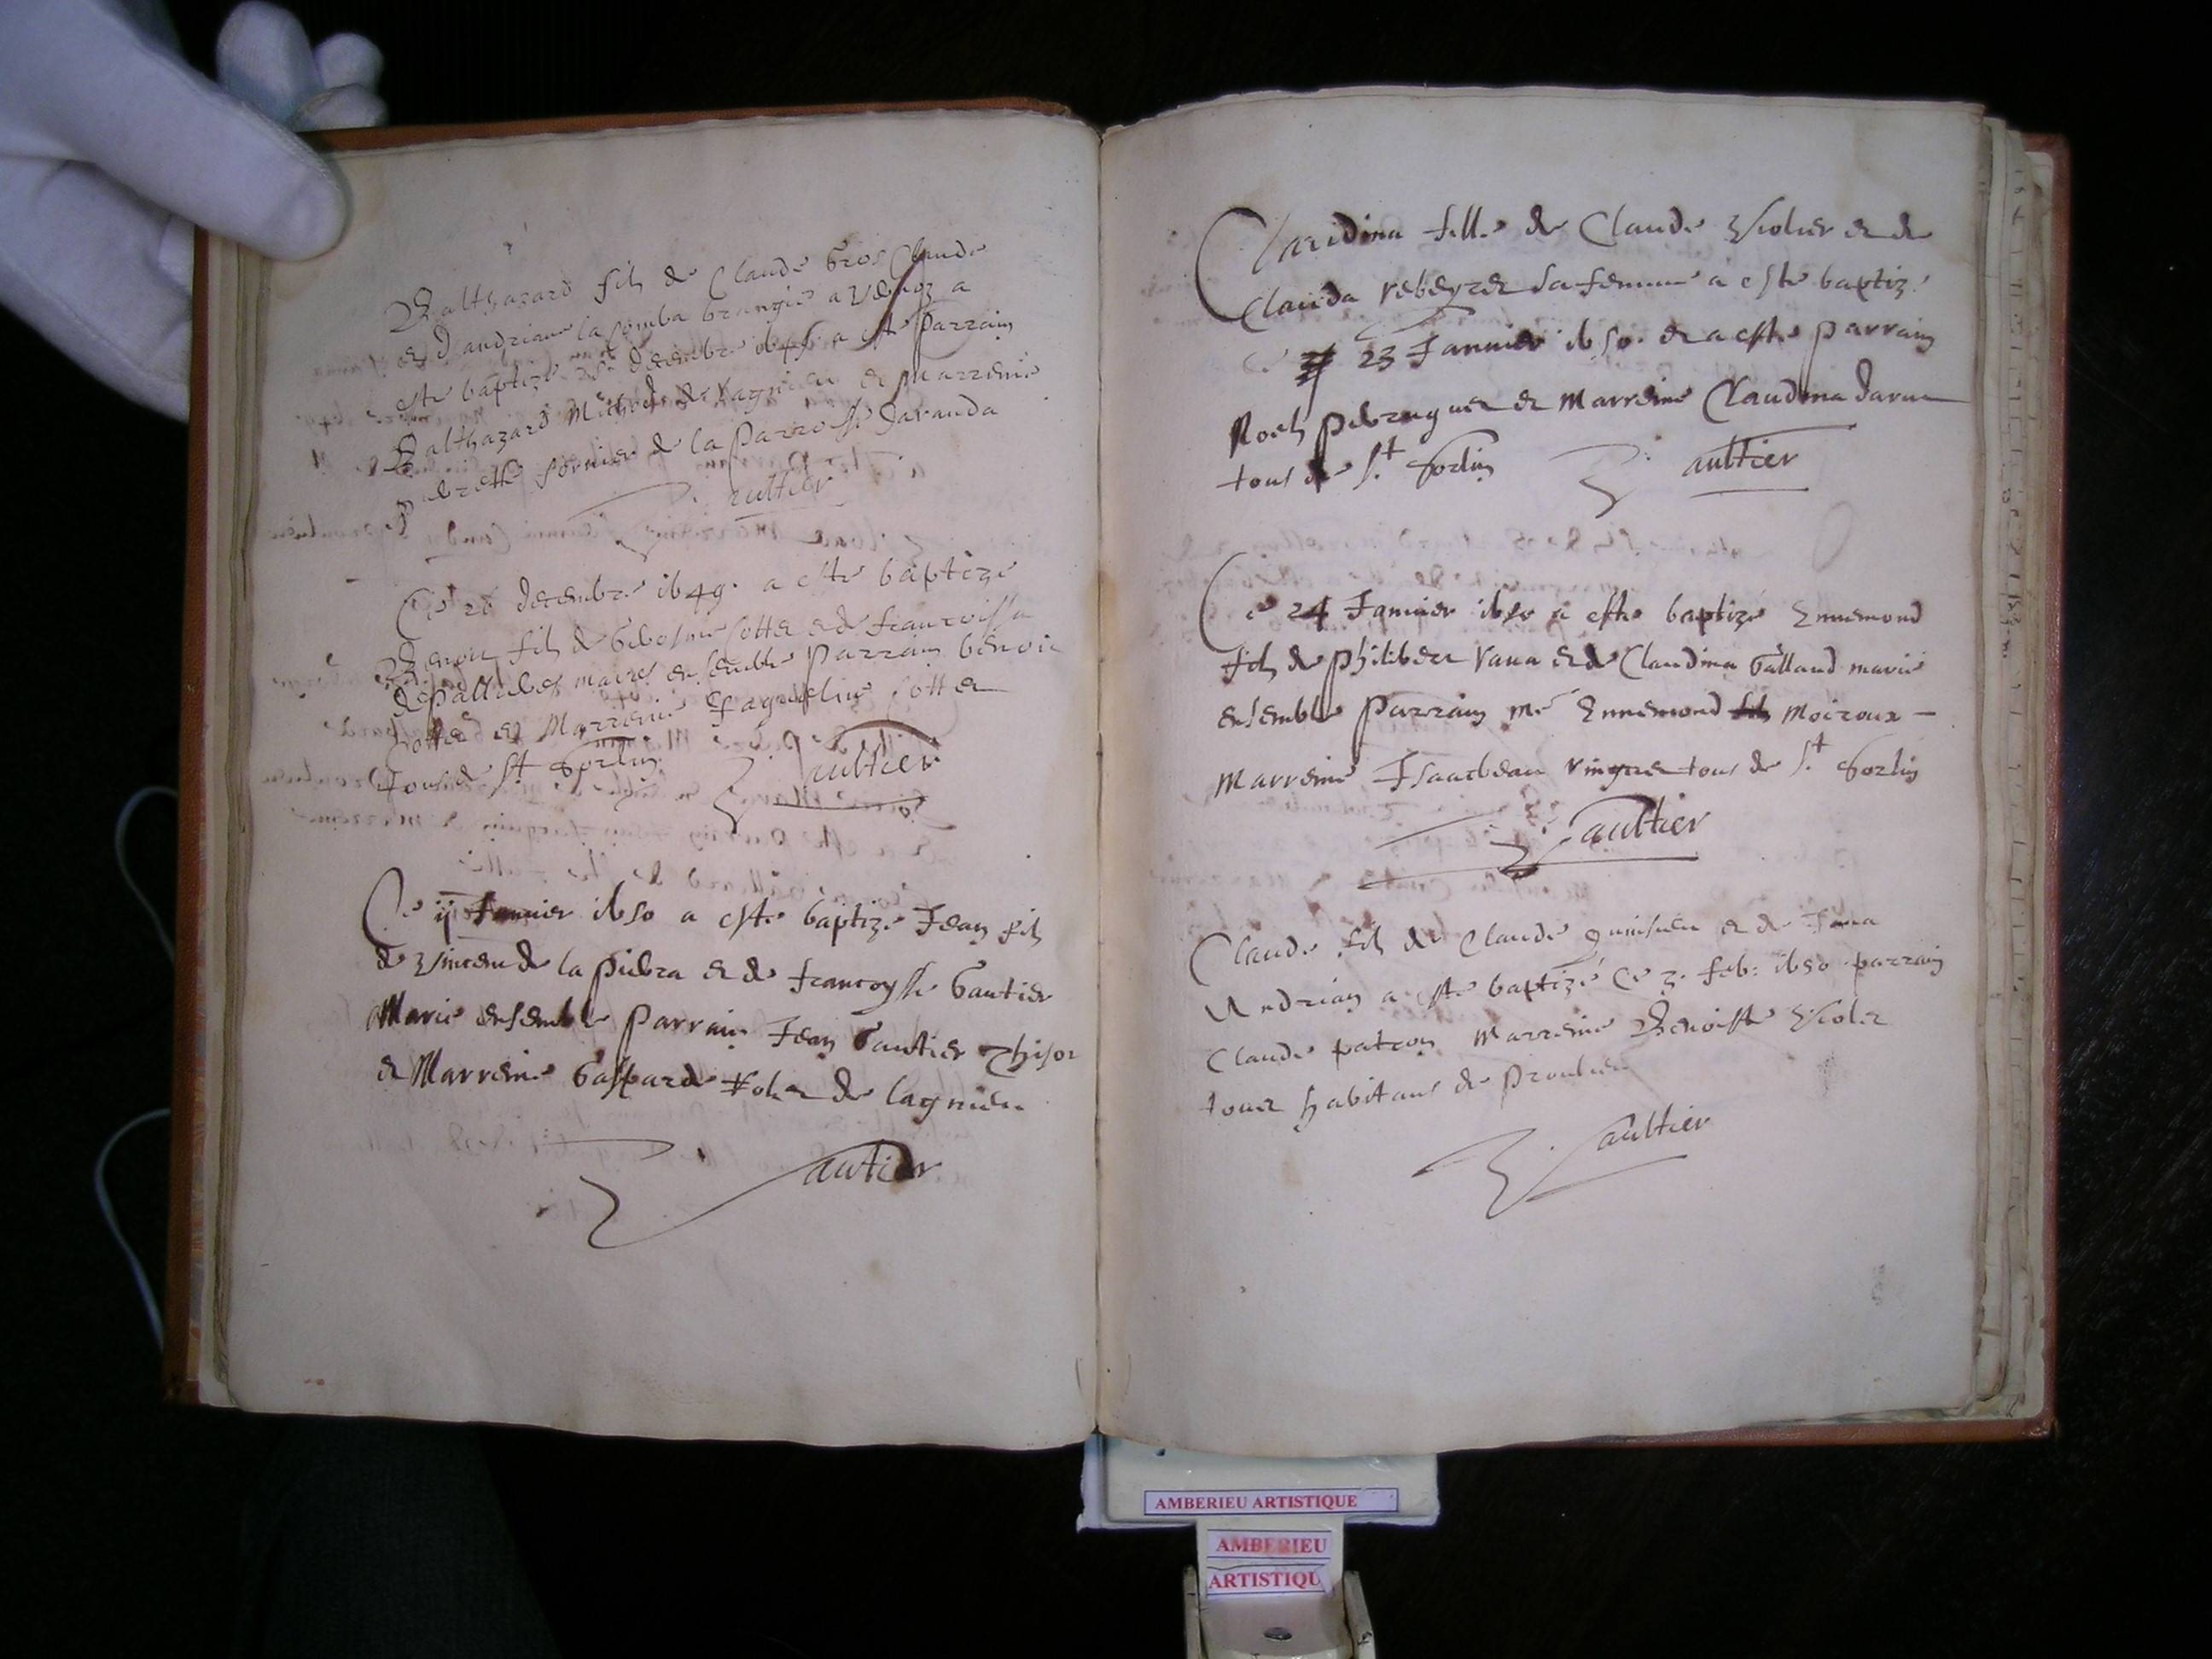 Balthazard fils de Claude Gros Claude
et d'andriane la Comba grangie a
este baptize decembre 1649 a este Parrain
Balthazard Michod de Lagnieu et Marreine
Pierrette fornier de la Parroisse Daranda
Gaultier
Ce 26 decembre 1649. a este baptize
Benoit fils de Cottet et de francoissa
mariés ensemble Parrain benoit
Cottet et Marreine Jaqueline Cottet
tous de St Sorlin
Gaultier
Ce ij Janvier 1650 a este baptize Jean fils
de Vincent de la Pierra et de francoysse Gautier
Marie ensemble Parrain Jean Gautier
et Marreine Gasparde de lagnieu
Gautier
Claudina fille de Claude Violier et de
Clauda sa femme a este baptiz
ce 23 Janvier 1650. et a este parrain
Roch et Marreine Claudina
tous de St Sorlin
Gaultier
Ce 24 Janvier 1650 a este baptizé Ennemond
fils de Philibert Vana et de Claudina Galland marie
ensemble Parrain Me Ennemond Moiroux -
Marreine Isaabeau tous de St Sorlin
Gaultier
Claude fils de Claude et de Jana
Andrian a este baptizé ce 3. feb: 1650 parrain
Claude patron Marreine Benoiste Violet
touz habitans de Proulieu
Gaultier
AMBERIEU ARTISTIQUE
AMBERIEU
ARTISTIQU